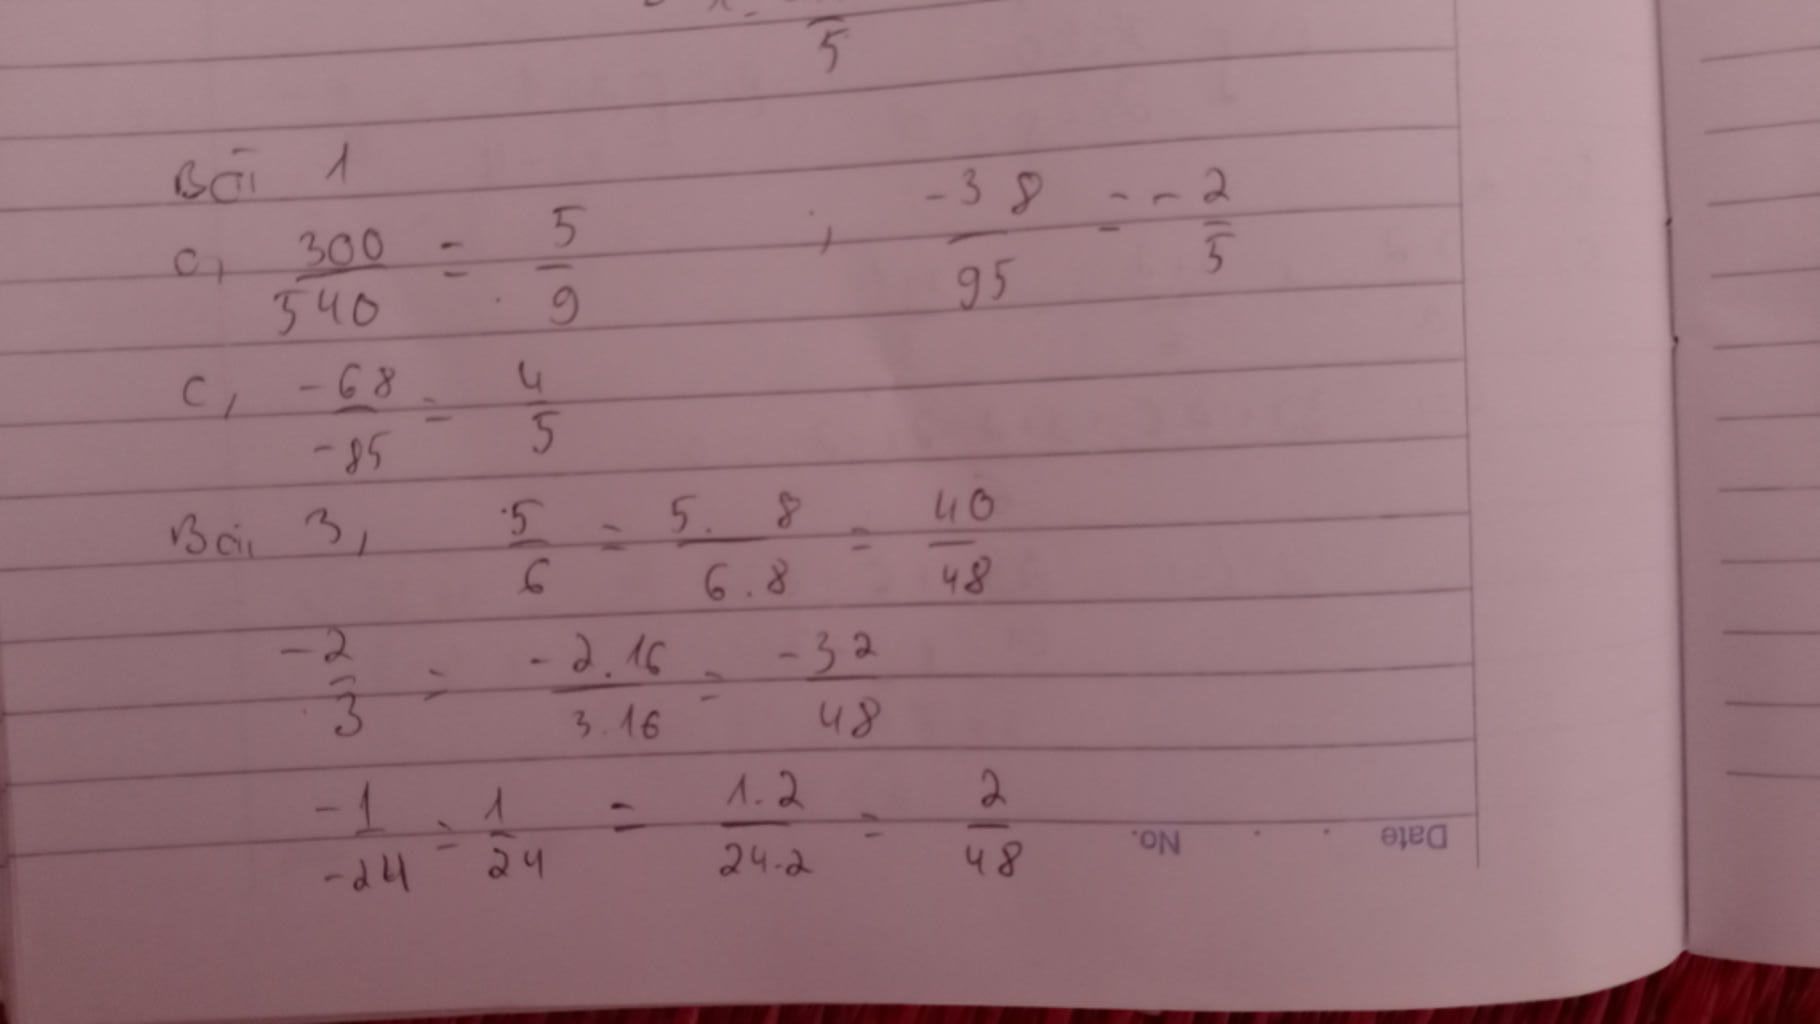 5
Bài 1
a, 300/540 = 5/9 ; -38/95 = -2/5
c, -68/-85 = 4/5
Bài 3, 5/6 = 5.8/6.8 = 40/48
-2/3 = -2.16/3.16 = -32/48
-1/-24 = 1/24 = 1.2/24.2 = 2/48
Date . . No.